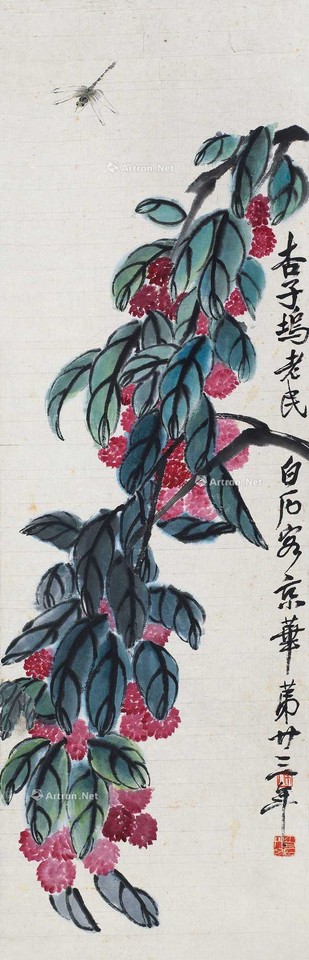 杏子塢老民白石客京華第廿三年
Artron.Net
Artron.Net
Artron.Net
Artron.Net